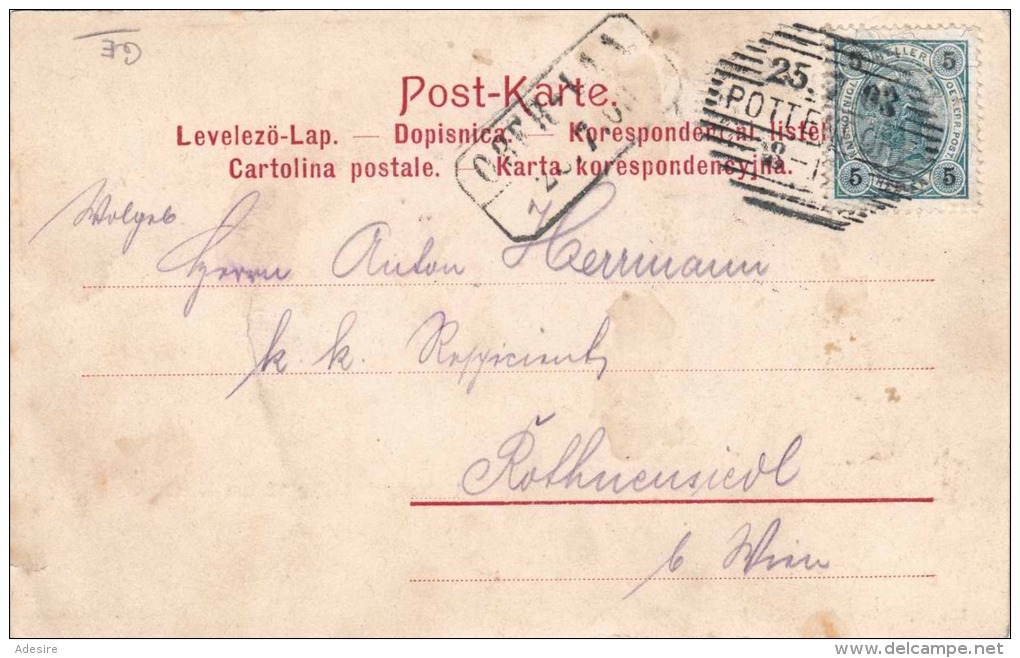 GE
Post-Karte.
Levelező-Lap. — Dopisnica. — Korespondenčni listek
Cartolina postale. — Karta korespondencyjna.
25. 03
POTTEN
5 HELLER 5
5 5
Wolgeb
Herrn Anton Herrmann
k. k. Respicient
Rothneusiedl
b Wien
Adesire
delcampe.net